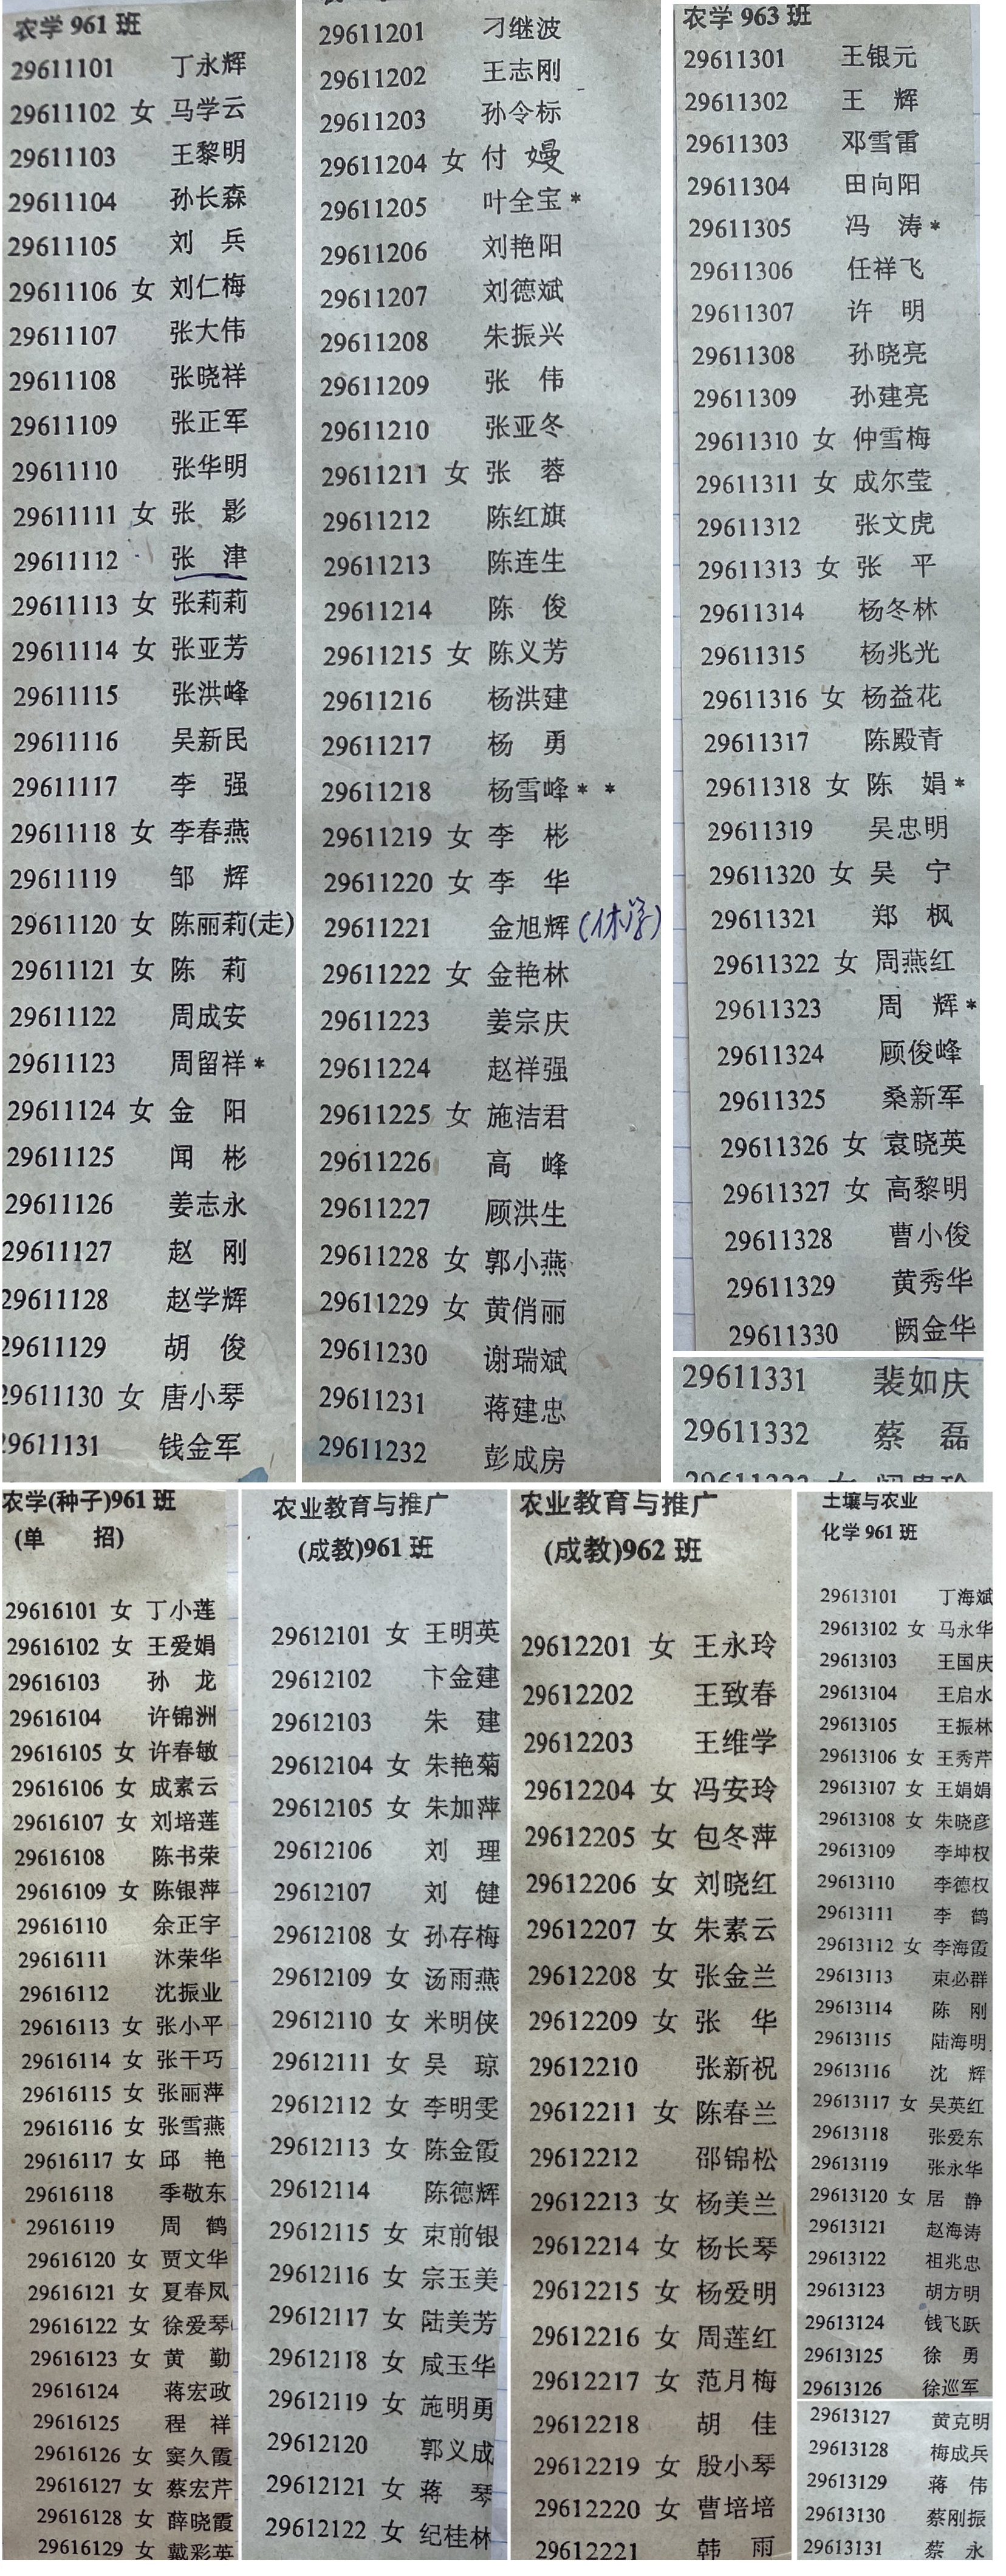 农学961班
29611101 丁永辉
29611102 女 马学云
29611103 王黎明
29611104 孙长森
29611105 刘 兵
29611106 女 刘仁梅
29611107 张大伟
29611108 张晓祥
29611109 张正军
29611110 张华明
29611111 女 张 影
29611112 张 津
29611113 女 张莉莉
29611114 女 张亚芳
29611115 张洪峰
29611116 吴新民
29611117 李 强
29611118 女 李春燕
29611119 邹 辉
29611120 女 陈丽莉(走)
29611121 女 陈 莉
29611122 周成安
29611123 周留祥*
29611124 女 金 阳
29611125 闻 彬
29611126 姜志永
29611127 赵 刚
29611128 赵学辉
29611129 胡 俊
29611130 女 唐小琴
29611131 钱金军
29611201 刁继波
29611202 王志刚
29611203 孙令标
29611204 女 付 嫚
29611205 叶全宝*
29611206 刘艳阳
29611207 刘德斌
29611208 朱振兴
29611209 张 伟
29611210 张亚冬
29611211 女 张 蓉
29611212 陈红旗
29611213 陈连生
29611214 陈 俊
29611215 女 陈义芳
29611216 杨洪建
29611217 杨 勇
29611218 杨雪峰* *
29611219 女 李 彬
29611220 女 李 华
29611221 金旭辉(休学)
29611222 女 金艳林
29611223 姜宗庆
29611224 赵祥强
29611225 女 施洁君
29611226 高 峰
29611227 顾洪生
29611228 女 郭小燕
29611229 女 黄俏丽
29611230 谢瑞斌
29611231 蒋建忠
29611232 彭成房
农学963班
29611301 王银元
29611302 王 辉
29611303 邓雪雷
29611304 田向阳
29611305 冯 涛*
29611306 任祥飞
29611307 许 明
29611308 孙晓亮
29611309 孙建亮
29611310 女 仲雪梅
29611311 女 成尔莹
29611312 张文虎
29611313 女 张 平
29611314 杨冬林
29611315 杨兆光
29611316 女 杨益花
29611317 陈殿青
29611318 女 陈 娟*
29611319 吴忠明
29611320 女 吴 宁
29611321 郑 枫
29611322 女 周燕红
29611323 周 辉*
29611324 顾俊峰
29611325 桑新军
29611326 女 袁晓英
29611327 女 高黎明
29611328 曹小俊
29611329 黄秀华
29611330 阙金华
29611331 裴如庆
29611332 蔡 磊
农学(种子)961班
(单 招)
29616101 女 丁小莲
29616102 女 王爱娟
29616103 孙 龙
29616104 许锦洲
29616105 女 许春敏
29616106 女 成素云
29616107 女 刘培莲
29616108 陈书荣
29616109 女 陈银萍
29616110 余正宇
29616111 沐荣华
29616112 沈振业
29616113 女 张小平
29616114 女 张干巧
29616115 女 张丽萍
29616116 女 张雪燕
29616117 女 邱 艳
29616118 季敬东
29616119 周 鹤
29616120 女 贾文华
29616121 女 夏春凤
29616122 女 徐爱琴
29616123 女 黄 勤
29616124 蒋宏政
29616125 程 祥
29616126 女 窦久霞
29616127 女 蔡宏芹
29616128 女 薛晓霞
29616129 女 戴彩英
农业教育与推广
(成教)961班
29612101 女 王明英
29612102 卞金建
29612103 朱 建
29612104 女 朱艳菊
29612105 女 朱加萍
29612106 刘 理
29612107 刘 健
29612108 女 孙存梅
29612109 女 汤雨燕
29612110 女 米明侠
29612111 女 吴 琼
29612112 女 李明雯
29612113 女 陈金霞
29612114 陈德辉
29612115 女 束前银
29612116 女 宗玉美
29612117 女 陆美芳
29612118 女 咸玉华
29612119 女 施明勇
29612120 郭义成
29612121 女 蒋 琴
29612122 女 纪桂林
农业教育与推广
(成教)962班
29612201 女 王永玲
29612202 王致春
29612203 王维学
29612204 女 冯安玲
29612205 女 包冬萍
29612206 女 刘晓红
29612207 女 朱素云
29612208 女 张金兰
29612209 女 张 华
29612210 张新祝
29612211 女 陈春兰
29612212 邵锦松
29612213 女 杨美兰
29612214 女 杨长琴
29612215 女 杨爱明
29612216 女 周莲红
29612217 女 范月梅
29612218 胡 佳
29612219 女 殷小琴
29612220 女 曹培培
29612221 韩 雨
土壤与农业
化学961班
29613101 丁海斌
29613102 女 马永华
29613103 王国庆
29613104 王启水
29613105 王振林
29613106 女 王秀芹
29613107 女 王娟娟
29613108 女 朱晓彦
29613109 李坤权
29613110 李德权
29613111 李 鹤
29613112 女 李海霞
29613113 束必群
29613114 陈 刚
29613115 陆海明
29613116 沈 辉
29613117 女 吴英红
29613118 张爱东
29613119 张永华
29613120 女 居 静
29613121 赵海涛
29613122 祖兆忠
29613123 胡方明
29613124 钱飞跃
29613125 徐 勇
29613126 徐巡军
29613127 黄克明
29613128 梅成兵
29613129 蒋 伟
29613130 蔡刚振
29613131 蔡 永